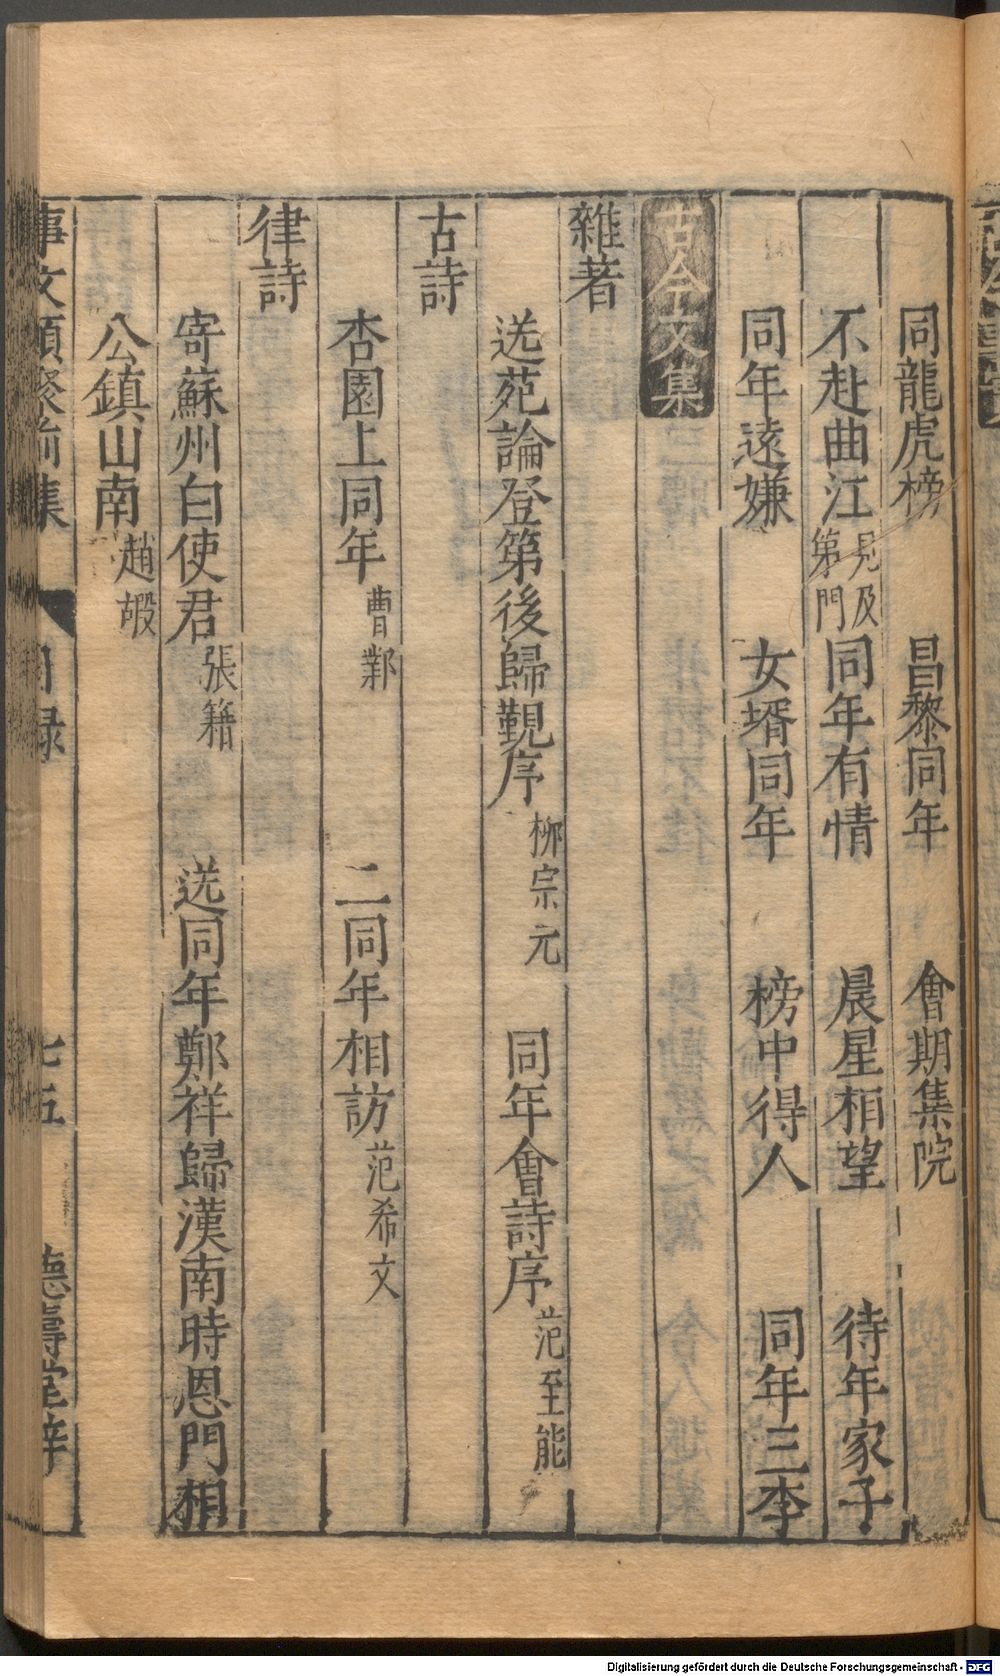 同龍虎榜　昌黎同年　會期集院
不赴曲江見及第門　同年有情　晨星相望　待年家子
同年遠嫌　女壻同年　榜中得人　同年三李
古今文集
雜著
送苑論登第後歸覲序柳宗元　同年會詩序范至能
古詩
杏園上同年曹鄴　二同年相訪范希文
律詩
寄蘇州白使君張籍　送同年鄭祥歸漢南時恩門相
公鎮山南趙嘏
事文類聚前集　目録　七五　德壽堂梓
Digitalisierung gefördert durch die Deutsche Forschungsgemeinschaft - DFG